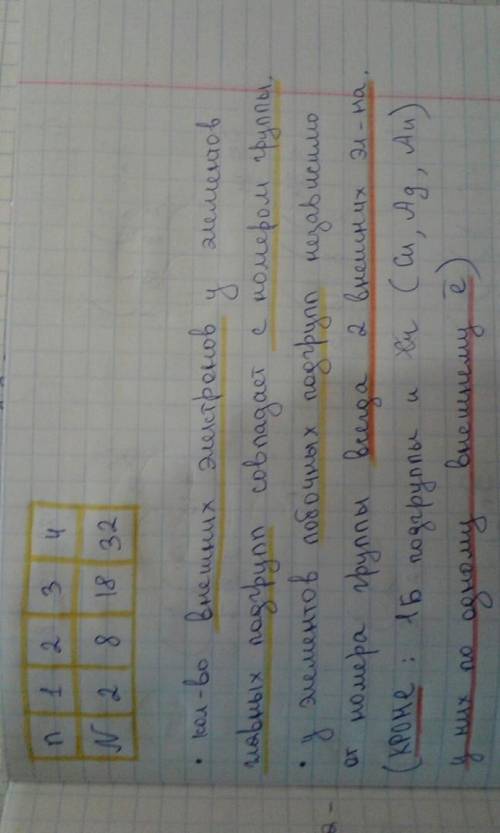 n 1 2 3 4
N 2 8 18 32
• кол-во внешних электронов у элементов
главных подгрупп совпадает с номером группы.
• у элементов побочных подгрупп независимо
от номера группы всегда 2 внешних эл-на.
(КРОМЕ: 1Б подгруппы и (Cu, Ag, Au)
у них по одному внешнему ē)